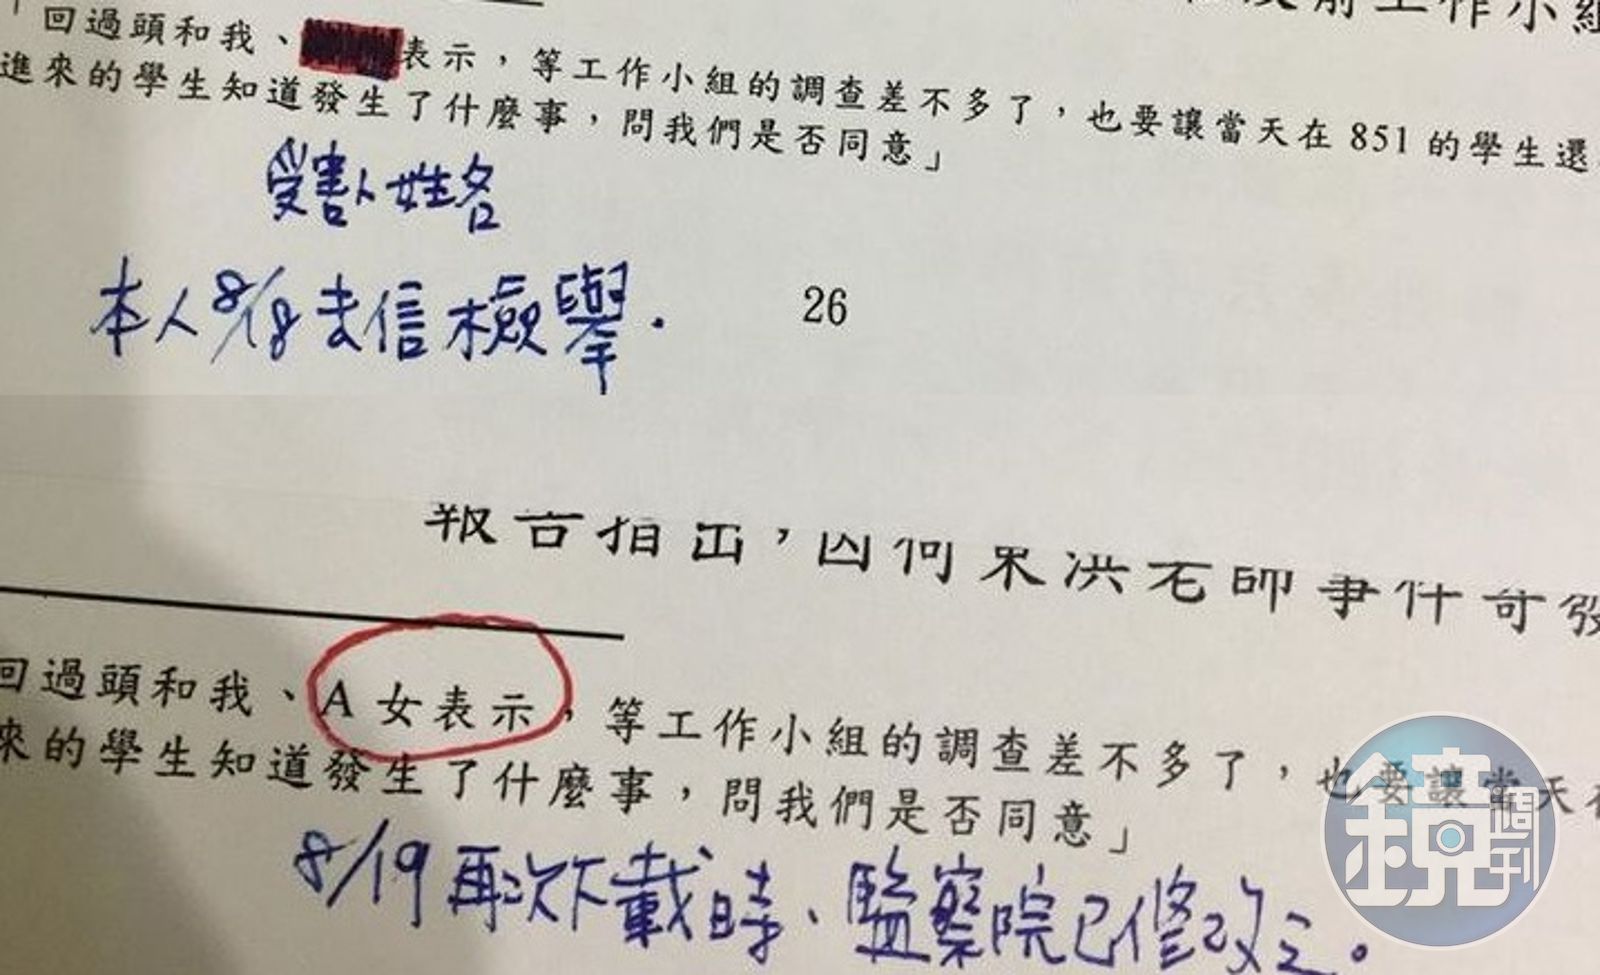 工作小組
「回過頭和我、表示，等工作小組的調查差不多了，也要讓當天在 851 的學生還
進來的學生知道發生了什麼事，問我們是否同意」
受害人姓名
本人8/18去信檢舉.
26
報告指出，因何東洪老師事件可發
回過頭和我、A 女表示，等工作小組的調查差不多了，也要讓當天在
來的學生知道發生了什麼事，問我們是否同意」
8/19再次下載時、監察院已修改之。
鏡週刊